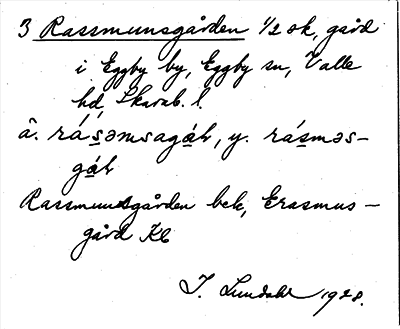 3 Rassmunsgården 1/2 ok, gård
i Eggby by, Eggby sn, Valle
hd, Skarab. l.
â. rá's̲əmsagá̲ḷ, y. rá's̲məs-
gá̲ḷ
Rassmunsgården bek, Erasmus-
gård Kb
I. Lundahl 1928.